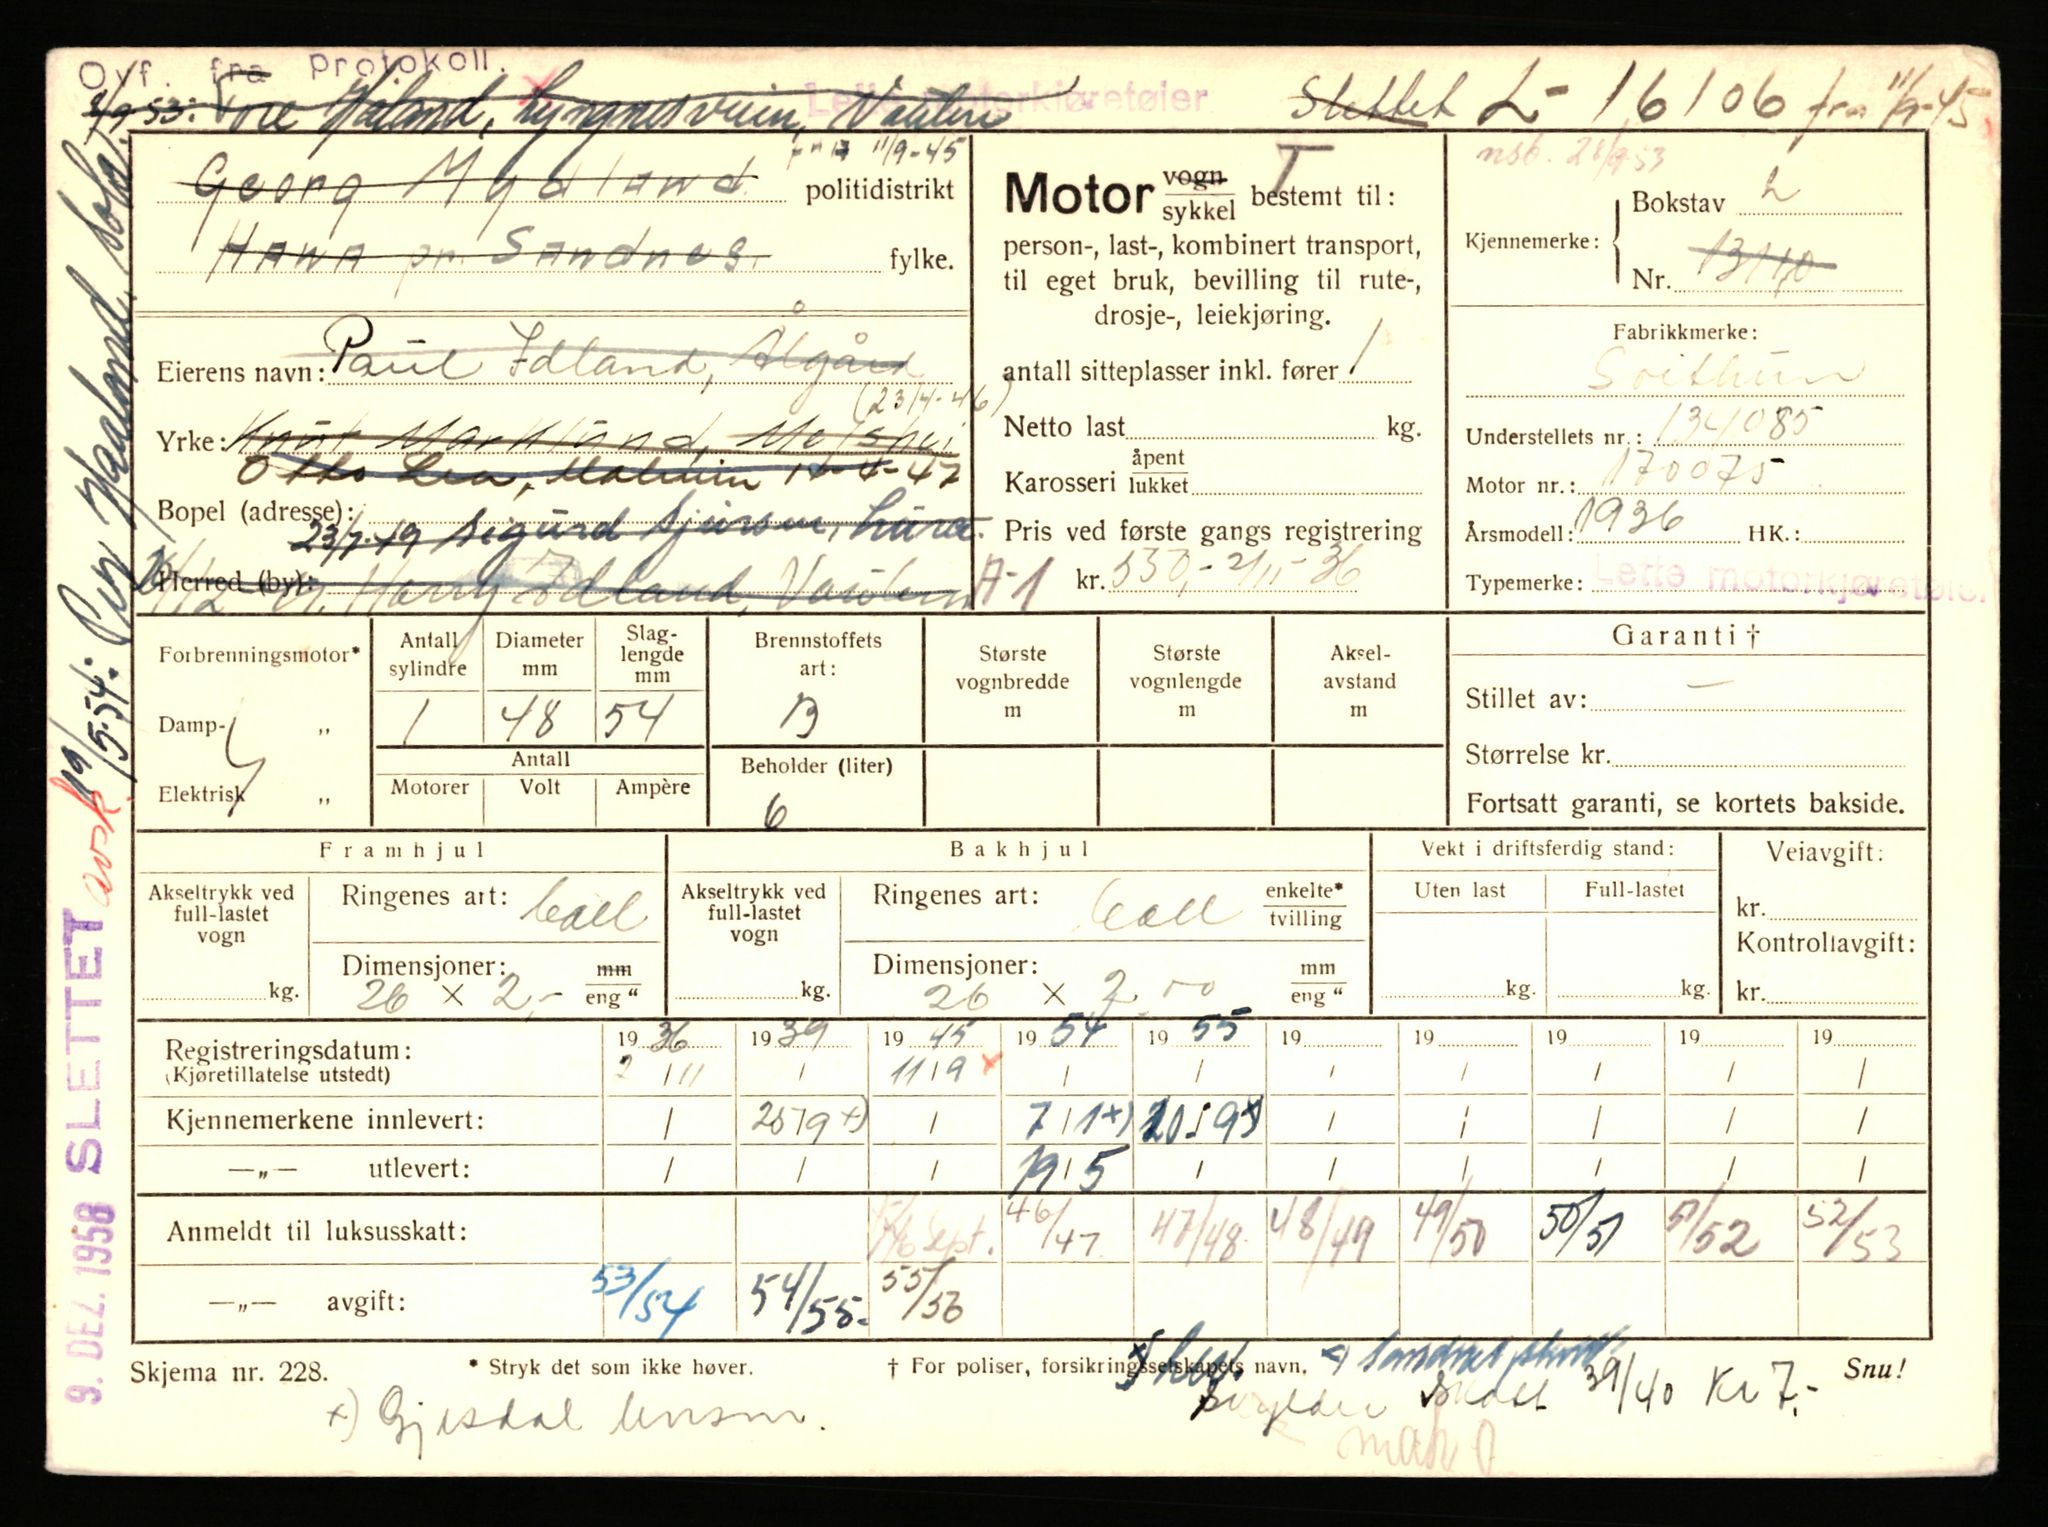 Ovf. fra Protokoll.
Lette motorkjøretøier
Slettet L- 16106 fra 11/9-45
9-53: Tore Høiland, Lyngnesveien,
fra 11/9-45
Georg Mydland politidistrikt
HANA pr. Sandnes. fylke.
Eierens navn: Paul Idland, Ålgård
(23/4-46)
Yrke: Knut
Otto Lea, 14-4-47
Bopel (adresse):
23/7-49 Sigurd Sjursen, Lura.
Herred (by): Harry Idland,
Motor vogn sykkel bestemt til:
T
person-, last-, kombinert transport,
til eget bruk, bevilling til rute-,
drosje-, leiekjøring.
antall sitteplasser inkl. fører 1
Netto last kg.
Karosseri åpent lukket
Pris ved første gangs registrering
A-1 kr. 530,- 2/11-36
nsb. 28/9-53
Kjennemerke: Bokstav L
Nr. 13140
Fabrikkmerke:
Svithun
Understellets nr.: 134085
Motor nr.: 170075
Årsmodell: 1936 HK.:
Typemerke: Lette motorkjøretøier
Forbrenningsmotor*
Damp- „
Elektrisk „
Antall sylindre
Diameter mm
Slaglengde mm
1 48 54
Antall
Motorer Volt Ampère
Brennstoffets art:
B
Beholder (liter)
6
Største vognbredde m
Største vognlengde m
Akselavstand m
Garanti †
Stillet av: —
Størrelse kr.
Fortsatt garanti, se kortets bakside.
Framhjul
Akseltrykk ved full-lastet vogn
kg.
Ringenes art: Coll
Dimensjoner: mm eng "
26 × 2,-
Bakhjul
Akseltrykk ved full-lastet vogn
kg.
Ringenes art: Coll enkelte* tvilling
Dimensjoner: mm eng "
26 × 2.00
Vekt i driftsferdig stand:
Uten last Full-lastet
kg. kg.
Veiavgift:
kr.
Kontrollavgift:
kr.
Registreringsdatum: 1936 1939 1945 1954 1955 19 19 19 19 19
(Kjøretillatelse utstedt) 2/11 / 11/9 × / / / / / / /
Kjennemerkene innlevert: / 20/9 ×) / 7/1 ×) 20/9 / / / / /
—„— utlevert: / / / 19/5 / / / / / /
Anmeldt til luksusskatt: sept. 46/47 47/48 48/49 49/50 50/51 51/52 52/53
—„— avgift: 53/54 54/55- 55/56
Skjema nr. 228.
* Stryk det som ikke høver.
† For poliser, forsikringsselskapets navn.
Snu!
×) Gjesdal lensm.
39/40 Kr 7.-
9. DEZ. 1958 SLETTET
avsk. 19/5-54: Haaland, Sola.